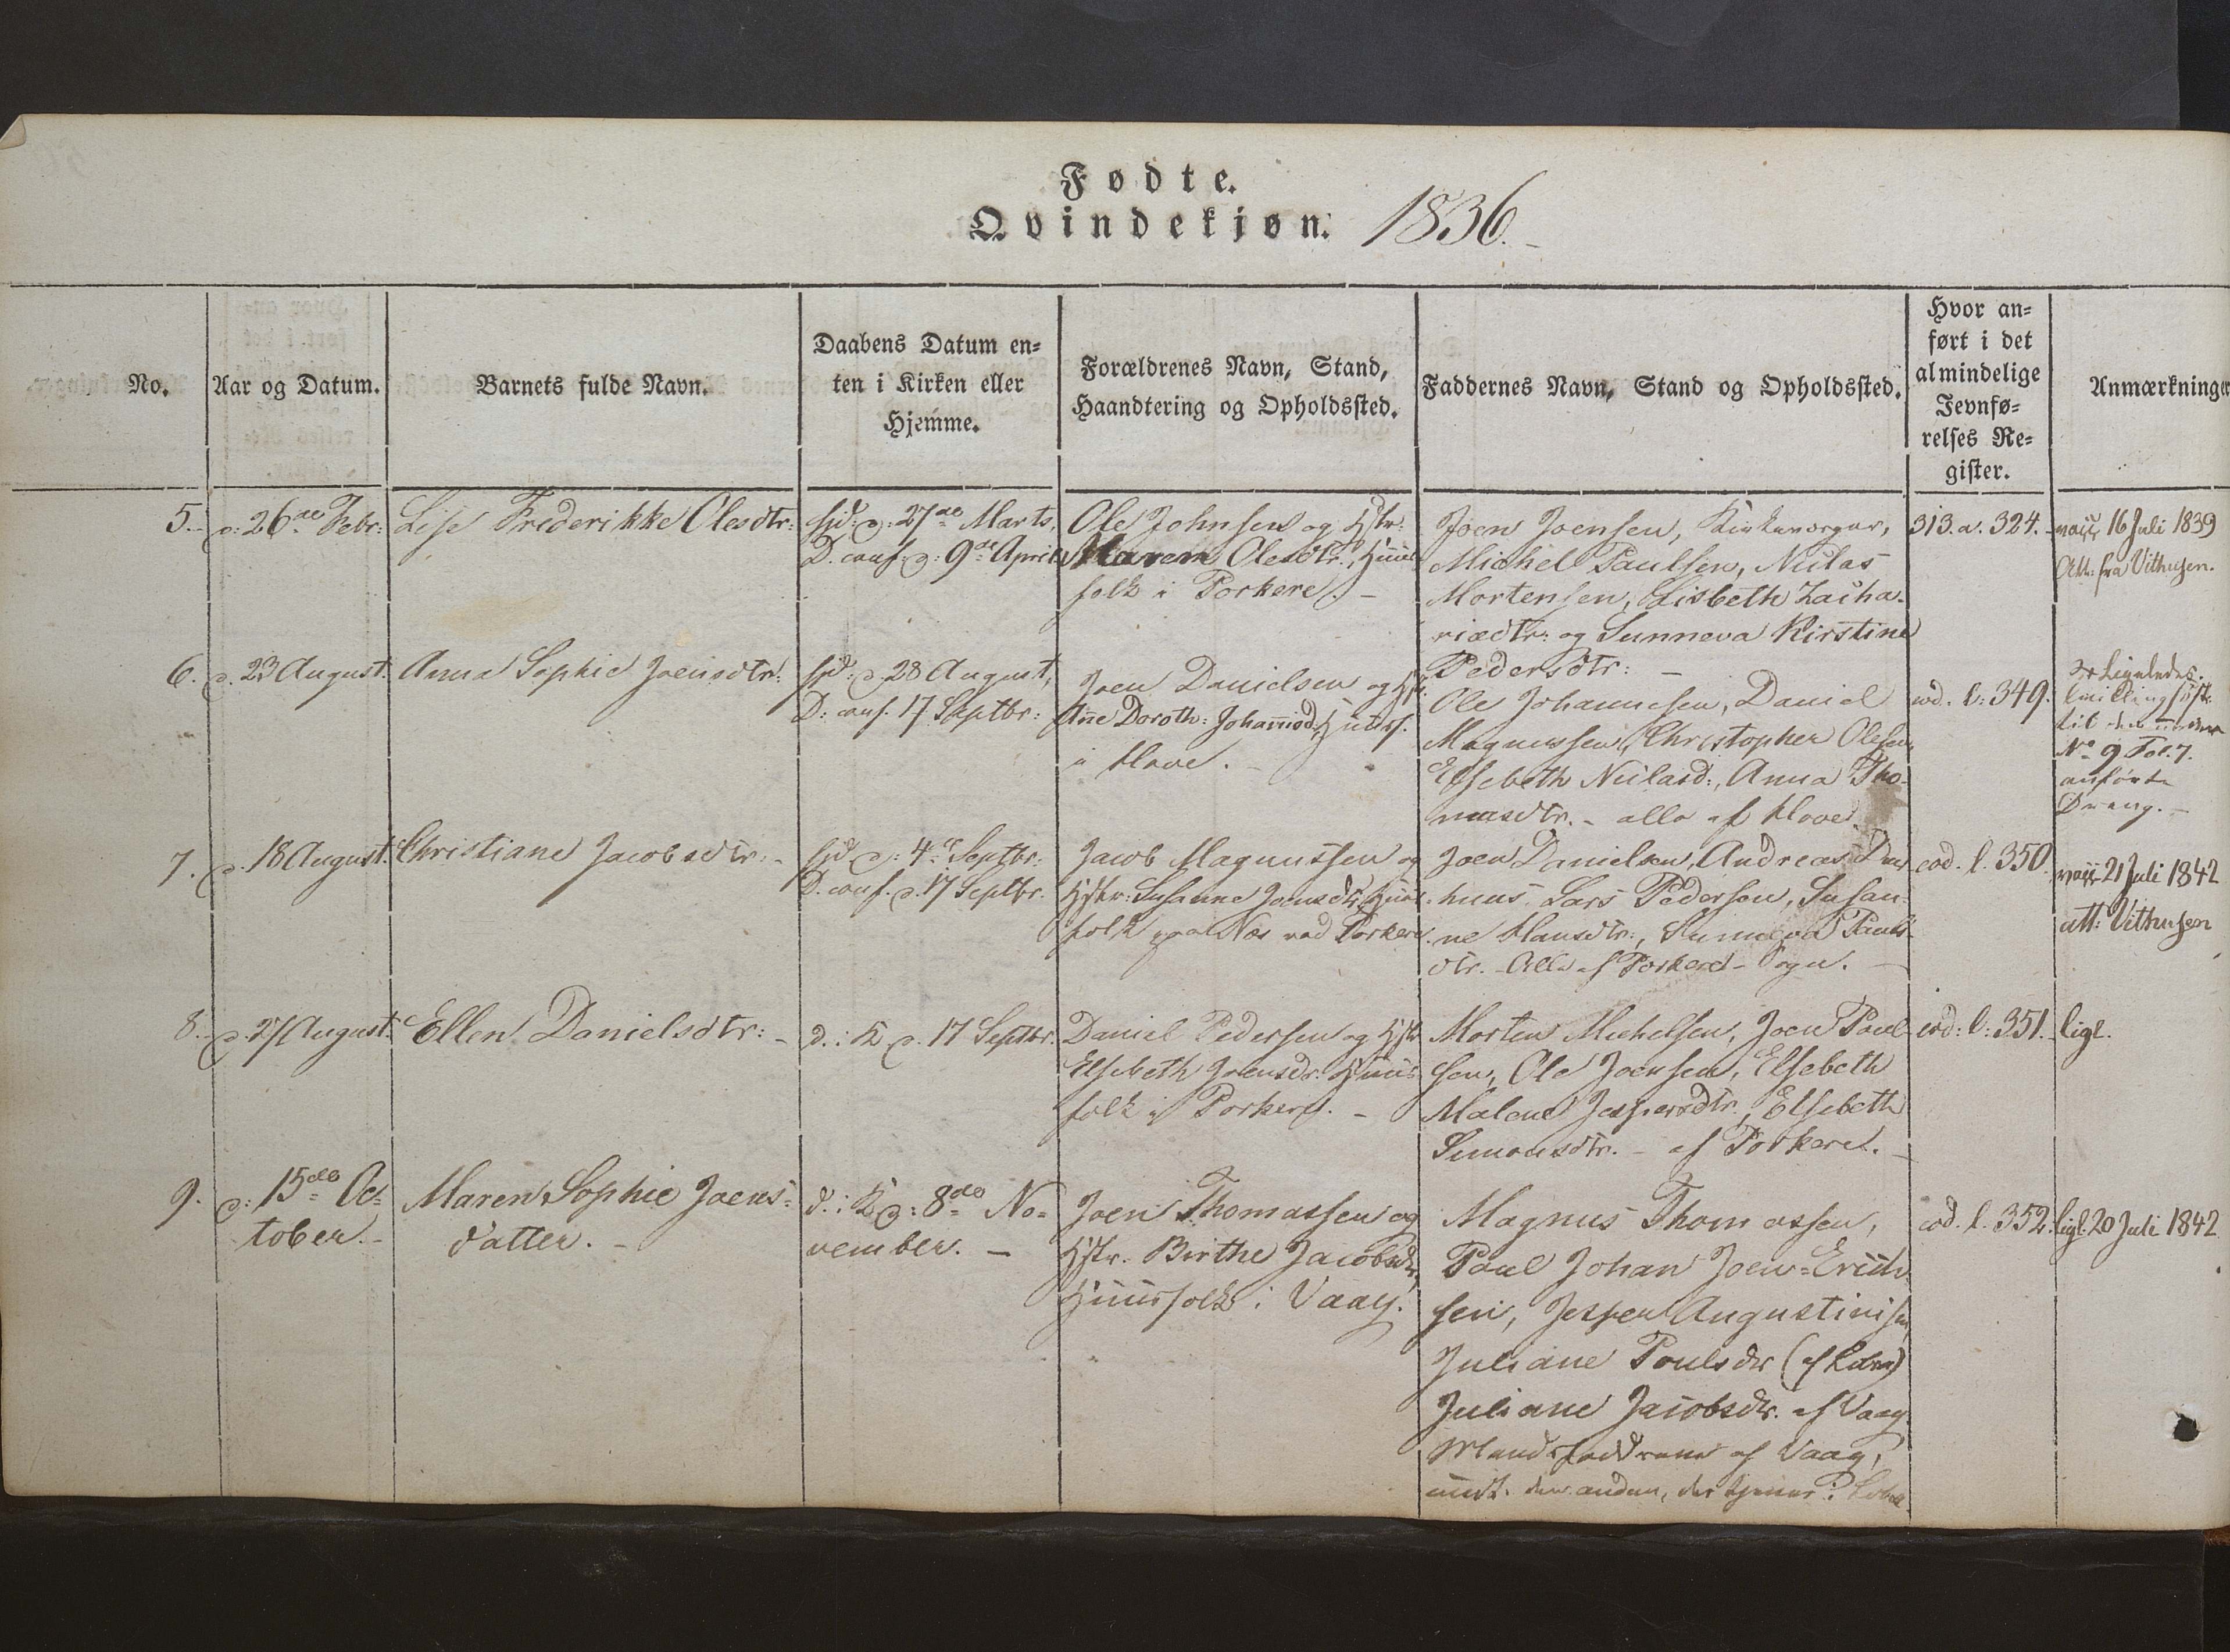 Fødte.
Qvindekjøn. 1836.
No.
Aar og Datum.
Barnets fulde Navn.
Daabens Datum en=
ten i Kirken eller
Hjemme.
Forældrenes Navn, Stand,
Haandtering og Opholdssted.
Faddernes Navn, Stand og Opholdssted.
Hvor an=
ført i det
almindelige
Jevnfø=
relses Re=
gister.
Anmærkninger
5.
d: 26de Febr:
Lise Frederikke Olesdtr:
hjd: d: 27de Marts,
D. conf: d: 9de April
Ole Johnsen og Hstr:
Maren Olesdtr., Huus
folk i Porkere. -
Joen Joensen, Kirkeværger,
Michel Paulsen, Niclas
Mortensen, Lisbeth Zacha-
riædtr: og Sunneva Kirstine
Pedersdtr: -
313. a. 324.
vacc 16 Juli 1839
Att: fra Vithusen.
6.
d. 23 August.
Anna Sophie Joensdtr:
hjd: d. 28 August,
D: conf. 17 Septbr:
Joen Danielsen og Hstr.
Añe Doroth: Johañisd: Huusf.
i Hove.
Ole Johannesen, Daniel
Magnussen, Christopher Olesen,
Elsebeth Niclasd:, Anna Tho-
masdtr. - alle af Hove.
eod. l: 349.
No 9 Fol. 7.
anførte
Dreng. -
7.
d. 18 August.
Christiane Jacobsdtr: -
hjd d: 4de Septbr:
D. conf. d. 17 Septbr.
Jacob Magnussen og
Hstr: Susanne Joensdtr, Huus-
folk paa Næs ved Porkere.
Joen Danielsen, Andreas
huus, Lars Pedersen, Susan-
ne Hansdtr:, Sunneva Pauls-
dtr. - Alle af Porkere - Sogn. -
eod. l. 350.
vacc 21 Juli 1842
att: Vithusen
8.
d. 27 August.
Ellen Danielsdtr: -
d. i K d. 17 Septbr.
Daniel Pedersen og Hstr
Elsebeth Joensdr: Huus-
folk i Porkere. -
Morten Michelsen, Joen Poul-
sen, Ole Joensen, Elsebeth
Malene Jespersdtr., Elsebeth
Simonsdtr. - af Porkere. -
eod: l: 351.
ligl.
9.
d: 15de Oc=
tober. -
Maren Sophie Joens=
datter. -
d. i K d: 8de No=
vember. -
Joen Thomassen og
Hstr. Birthe Jacobsdtr,
Huusfolk i Vaag.
Magnus Thomassen,
Poul Johan Joen=Erich-
sen, Jesper Augustinisen,
Juliane Poulsdr (af
Juliane Jacobsdr. af Vaag.
Mandsfaddrene af Vaag,
undt. den anden, der tjener i
eod. l. 352.
ligl. 20 Juli 1842